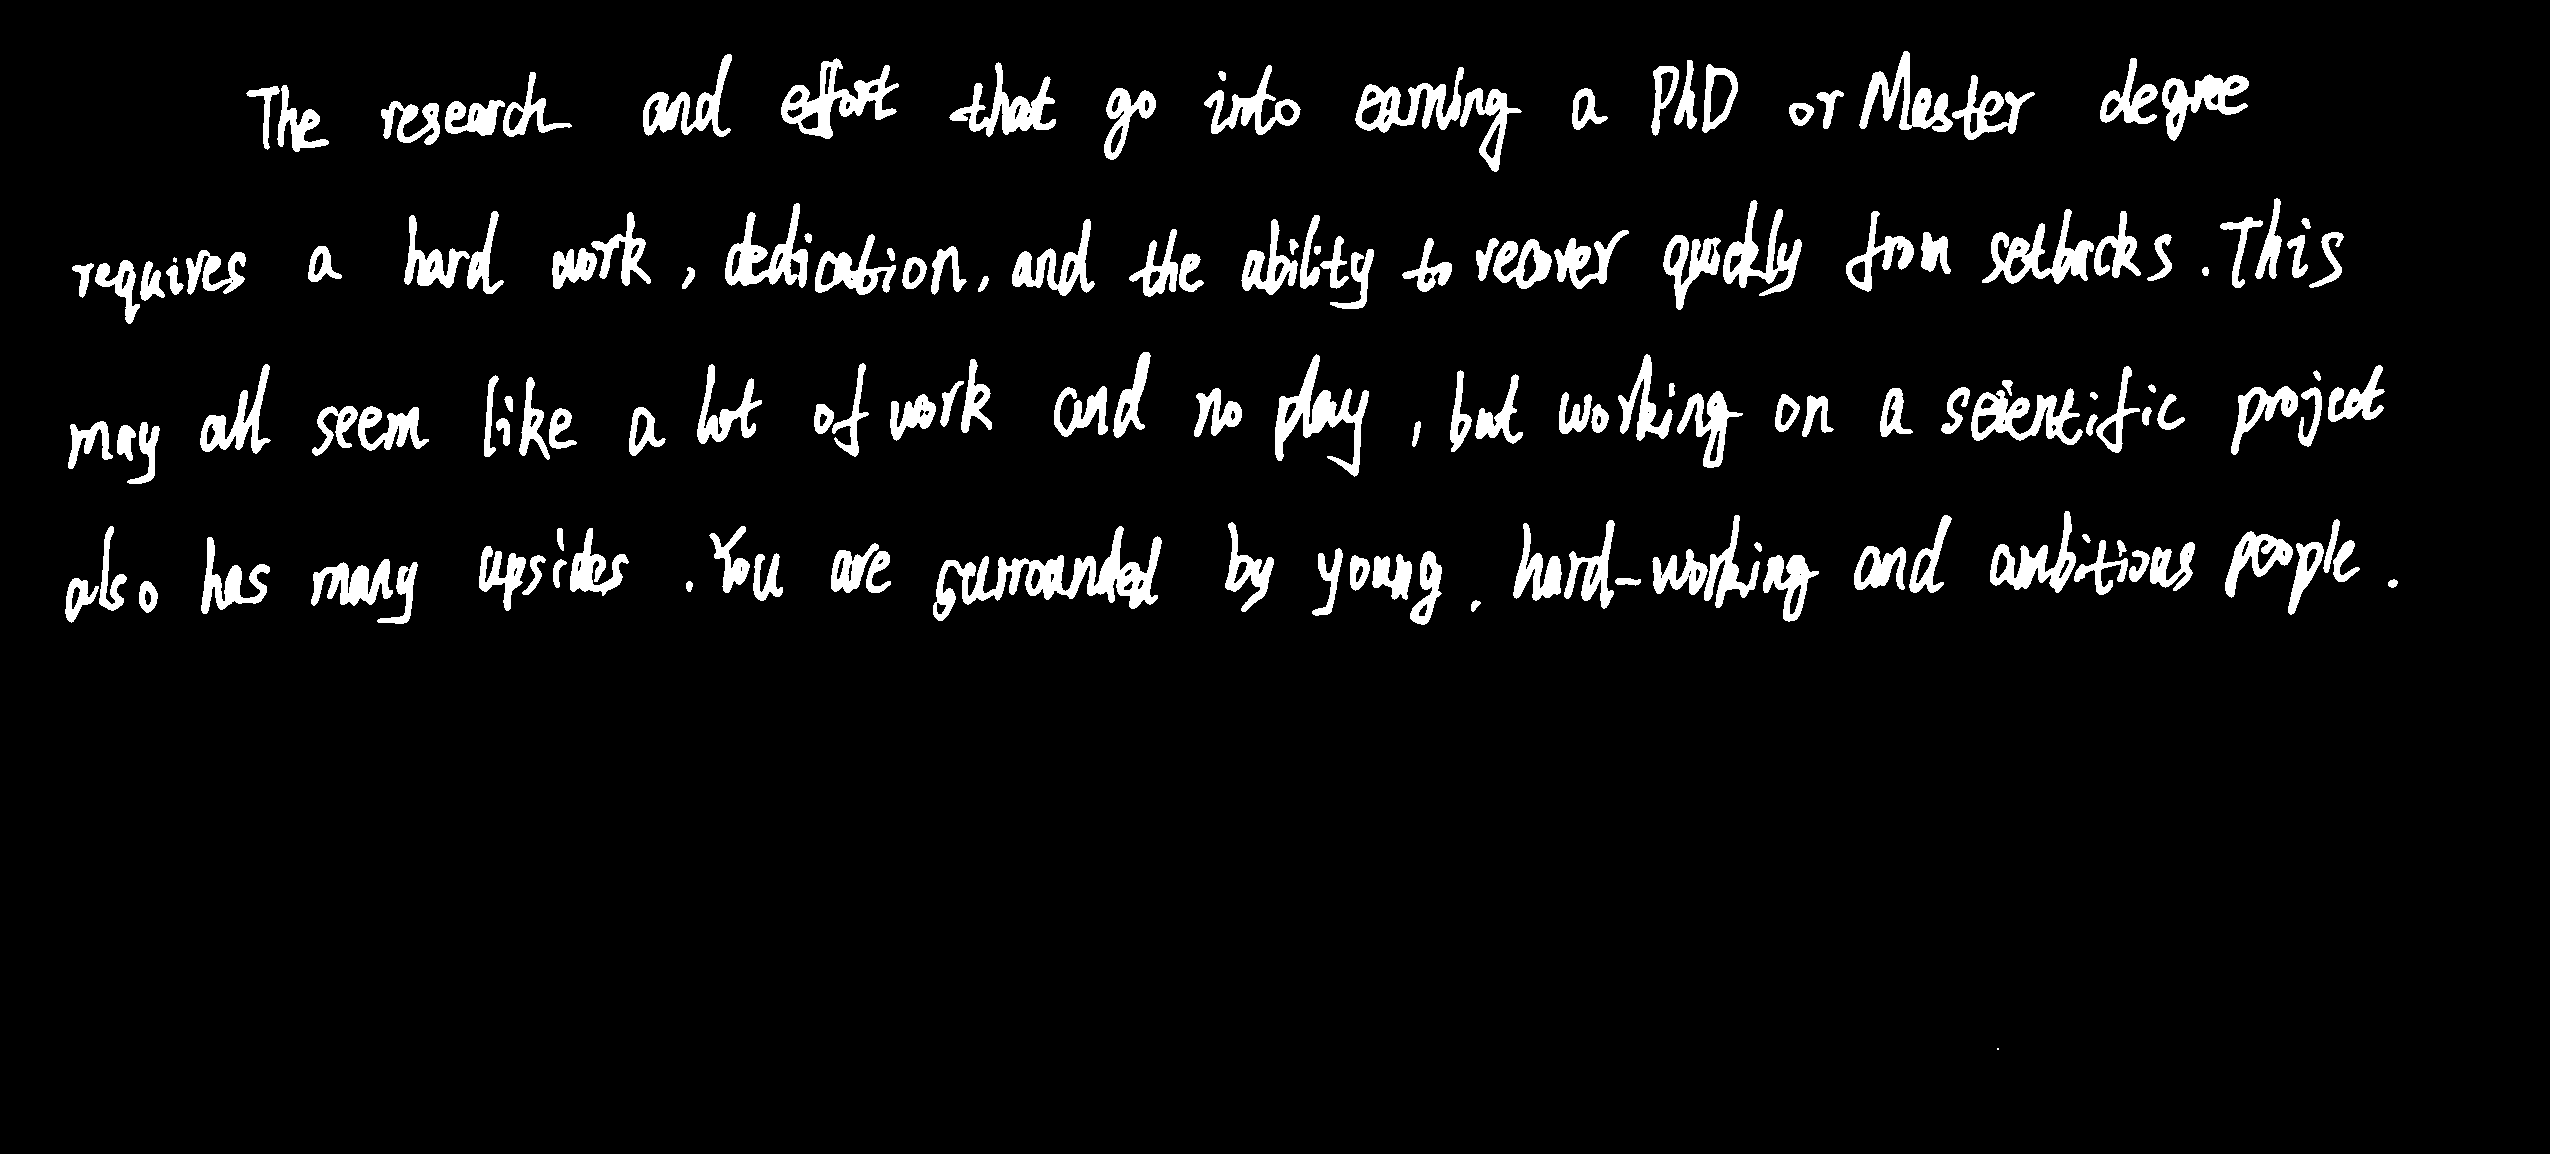 The research and effort that go into earning a PhD or Master degree
requires a hard work, dedication, and the ability to recover quickly from setbacks. This
may all seem like a lot of work and no play, but working on a scientific project
also has many upsides. You are surrounded by young, hard-working and ambitious people.